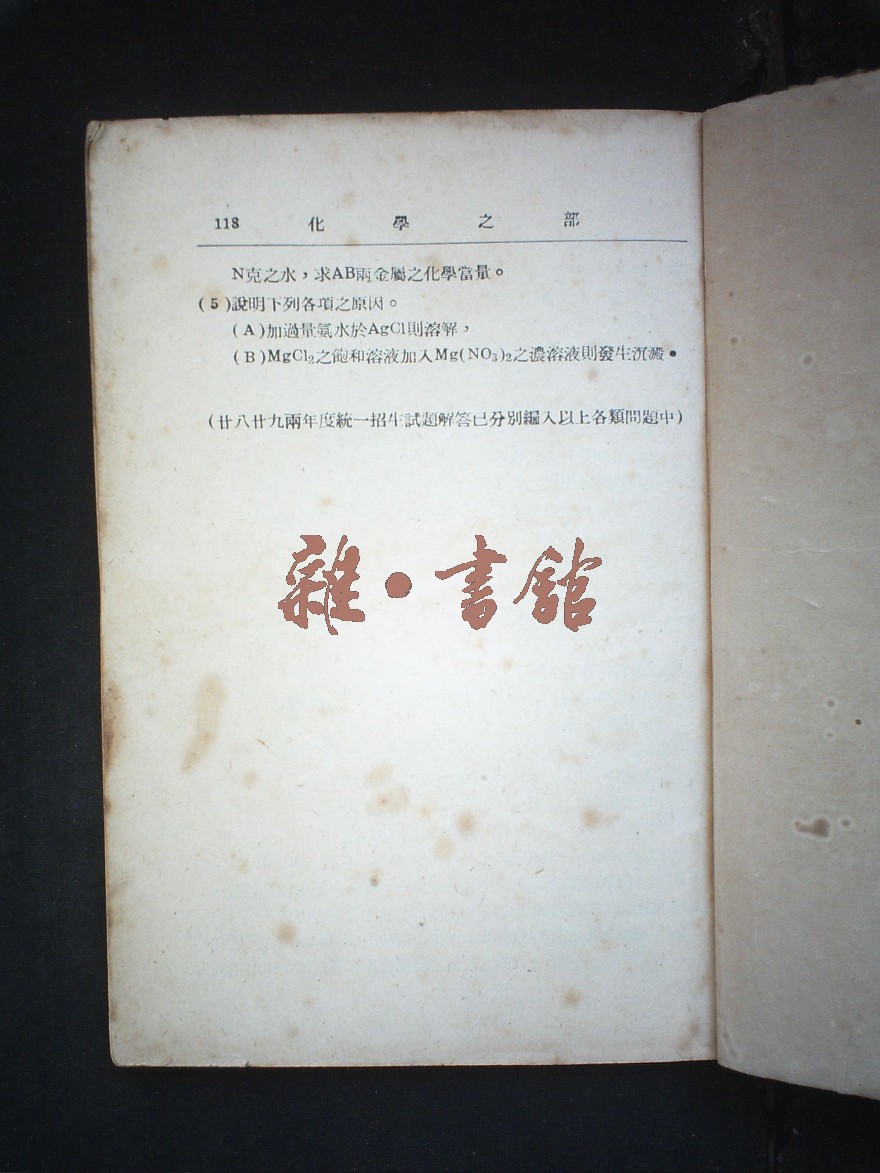 118 化學之部
N克之水，求AB兩金屬之化學當量。
(5)說明下列各項之原因。
(A)加過量氨水於AgCl則溶解，
(B)MgCl₂之飽和溶液加入Mg(NO₃)₂之濃溶液則發生沉澱。
(廿八廿九兩年度統一招生試題解答已分別編入以上各類問題中)
雜•書館